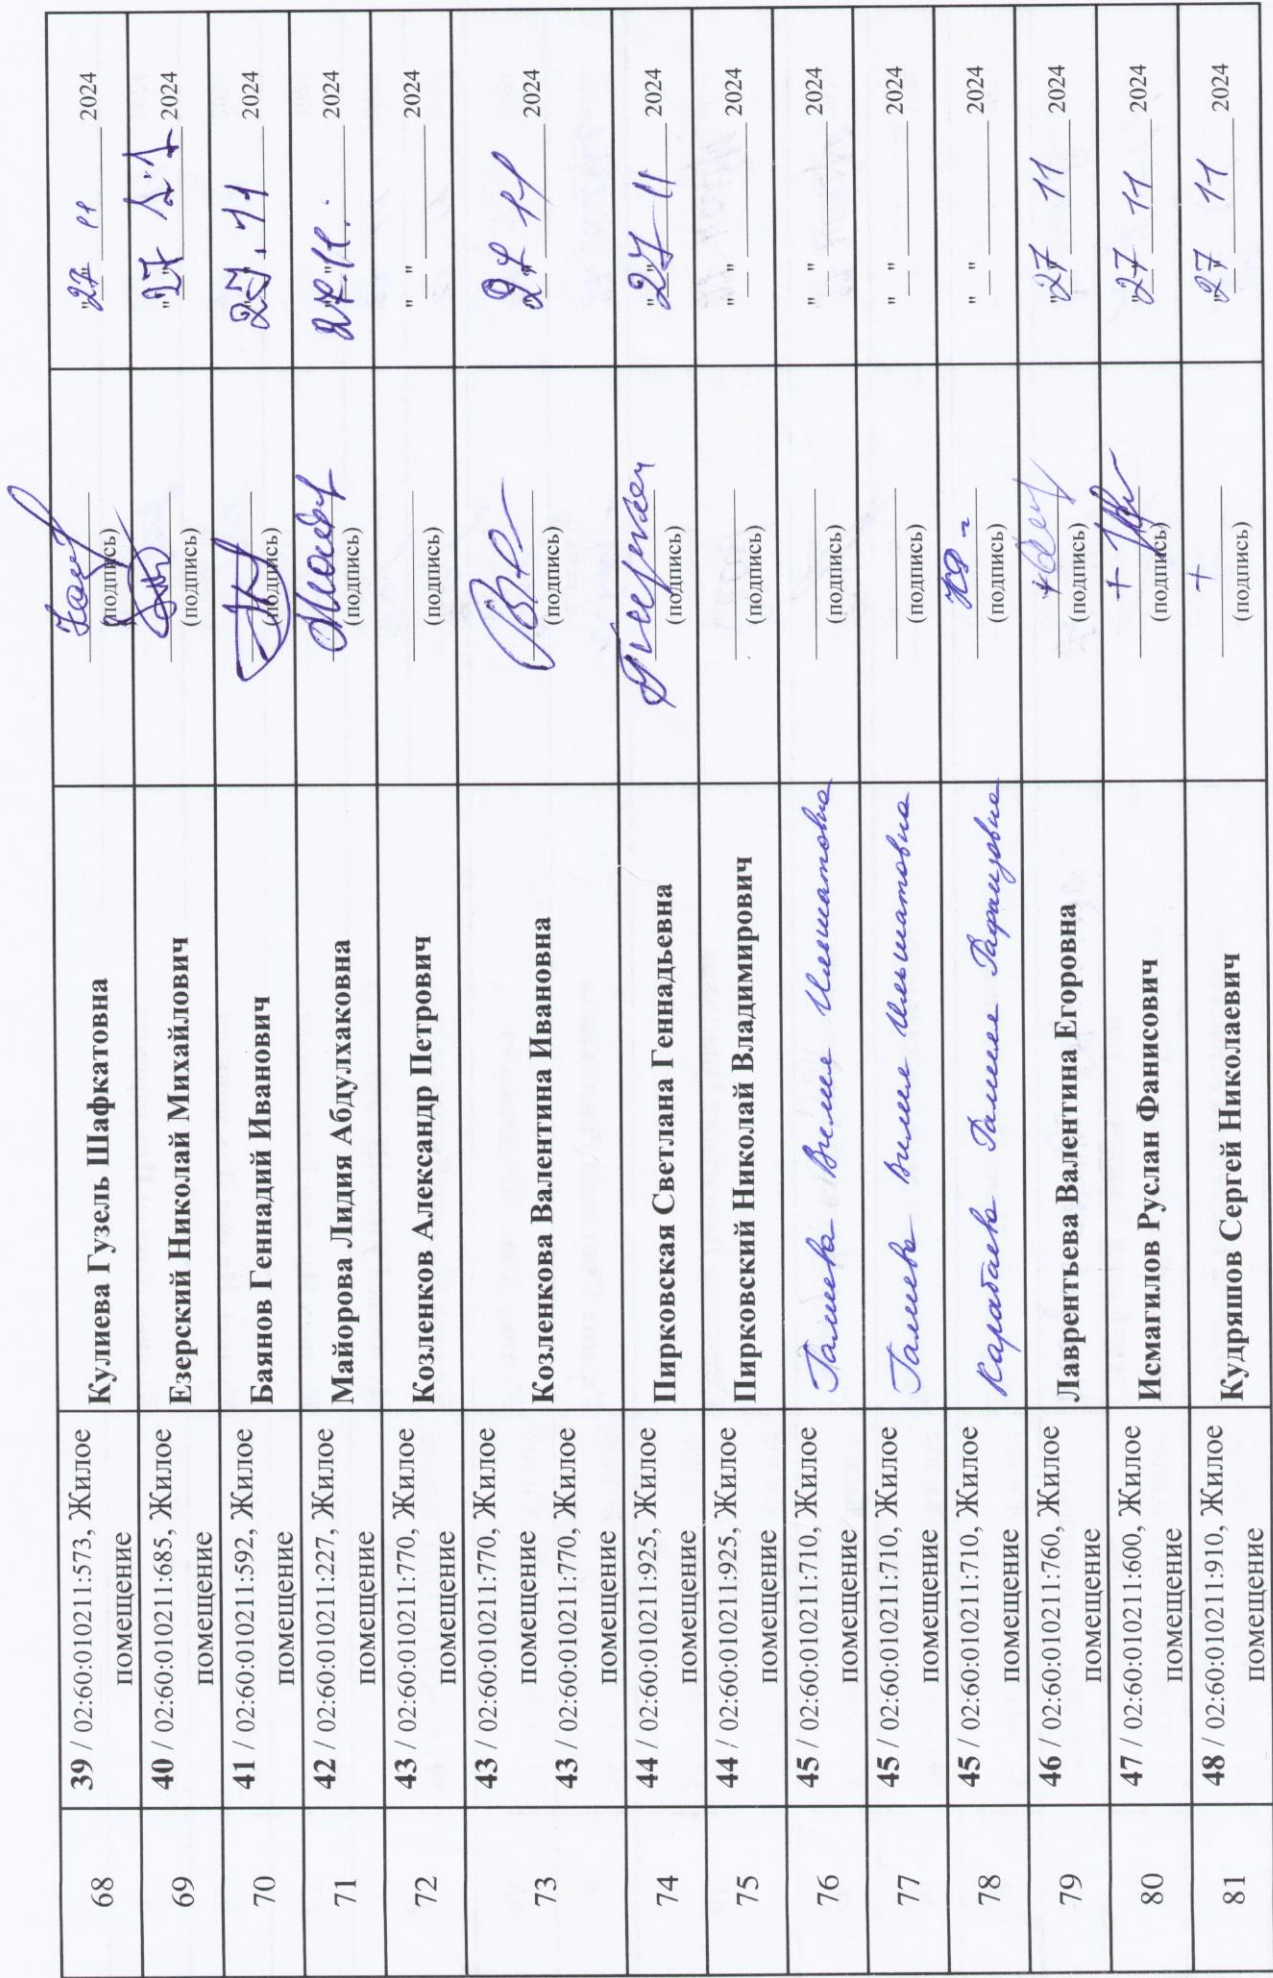 68
39 / 02:60:010211:573, Жилое
помещение
Кулиева Гузель Шафкатовна
(подпись)
"27" 11 2024
69
40 / 02:60:010211:685, Жилое
помещение
Езерский Николай Михайлович
(подпись)
"27 11 2024
70
41 / 02:60:010211:592, Жилое
помещение
Баянов Геннадий Иванович
(подпись)
27.11 2024
71
42 / 02:60:010211:227, Жилое
помещение
Майорова Лидия Абдулхаковна
(подпись)
27 11. 2024
72
43 / 02:60:010211:770, Жилое
помещение
Козленков Александр Петрович
(подпись)
"__" ______ 2024
73
43 / 02:60:010211:770, Жилое
помещение
43 / 02:60:010211:770, Жилое
помещение
Козленкова Валентина Ивановна
(подпись)
27 11 2024
74
44 / 02:60:010211:925, Жилое
помещение
Пирковская Светлана Геннадьевна
(подпись)
"27 11 2024
75
44 / 02:60:010211:925, Жилое
помещение
Пирковский Николай Владимирович
(подпись)
"__" ______ 2024
76
45 / 02:60:010211:710, Жилое
помещение
Галиева Вилия Ильшатовна
(подпись)
"__" ______ 2024
77
45 / 02:60:010211:710, Жилое
помещение
Галиева Вилия Ильшатовна
(подпись)
"__" ______ 2024
78
45 / 02:60:010211:710, Жилое
помещение
Карабаева
(подпись)
"__" ______ 2024
79
46 / 02:60:010211:760, Жилое
помещение
Лаврентьева Валентина Егоровна
+
(подпись)
"27 11 2024
80
47 / 02:60:010211:600, Жилое
помещение
Исмагилов Руслан Фанисович
+
(подпись)
"27 11 2024
81
48 / 02:60:010211:910, Жилое
помещение
Кудряшов Сергей Николаевич
+
(подпись)
"27 11 2024